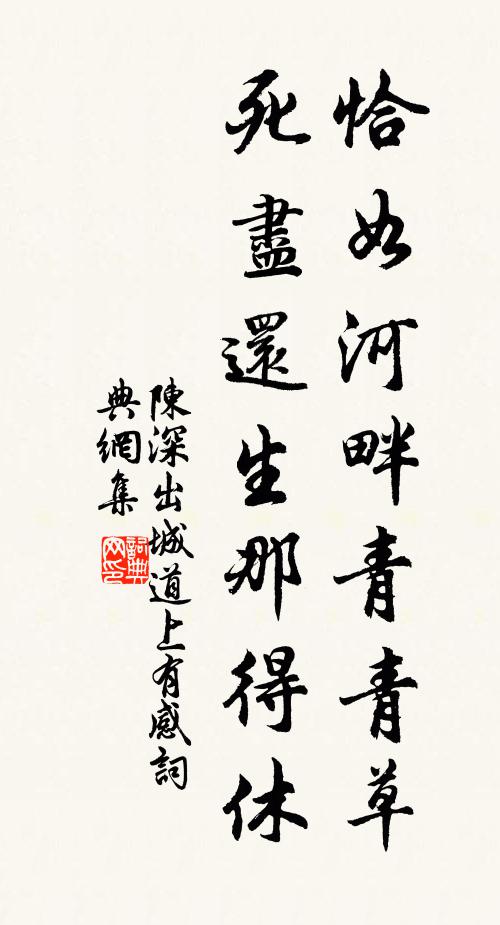 恰如河畔青青草
死盡還生那得休
陳深出城道上有感詞
典網集
詞典網印